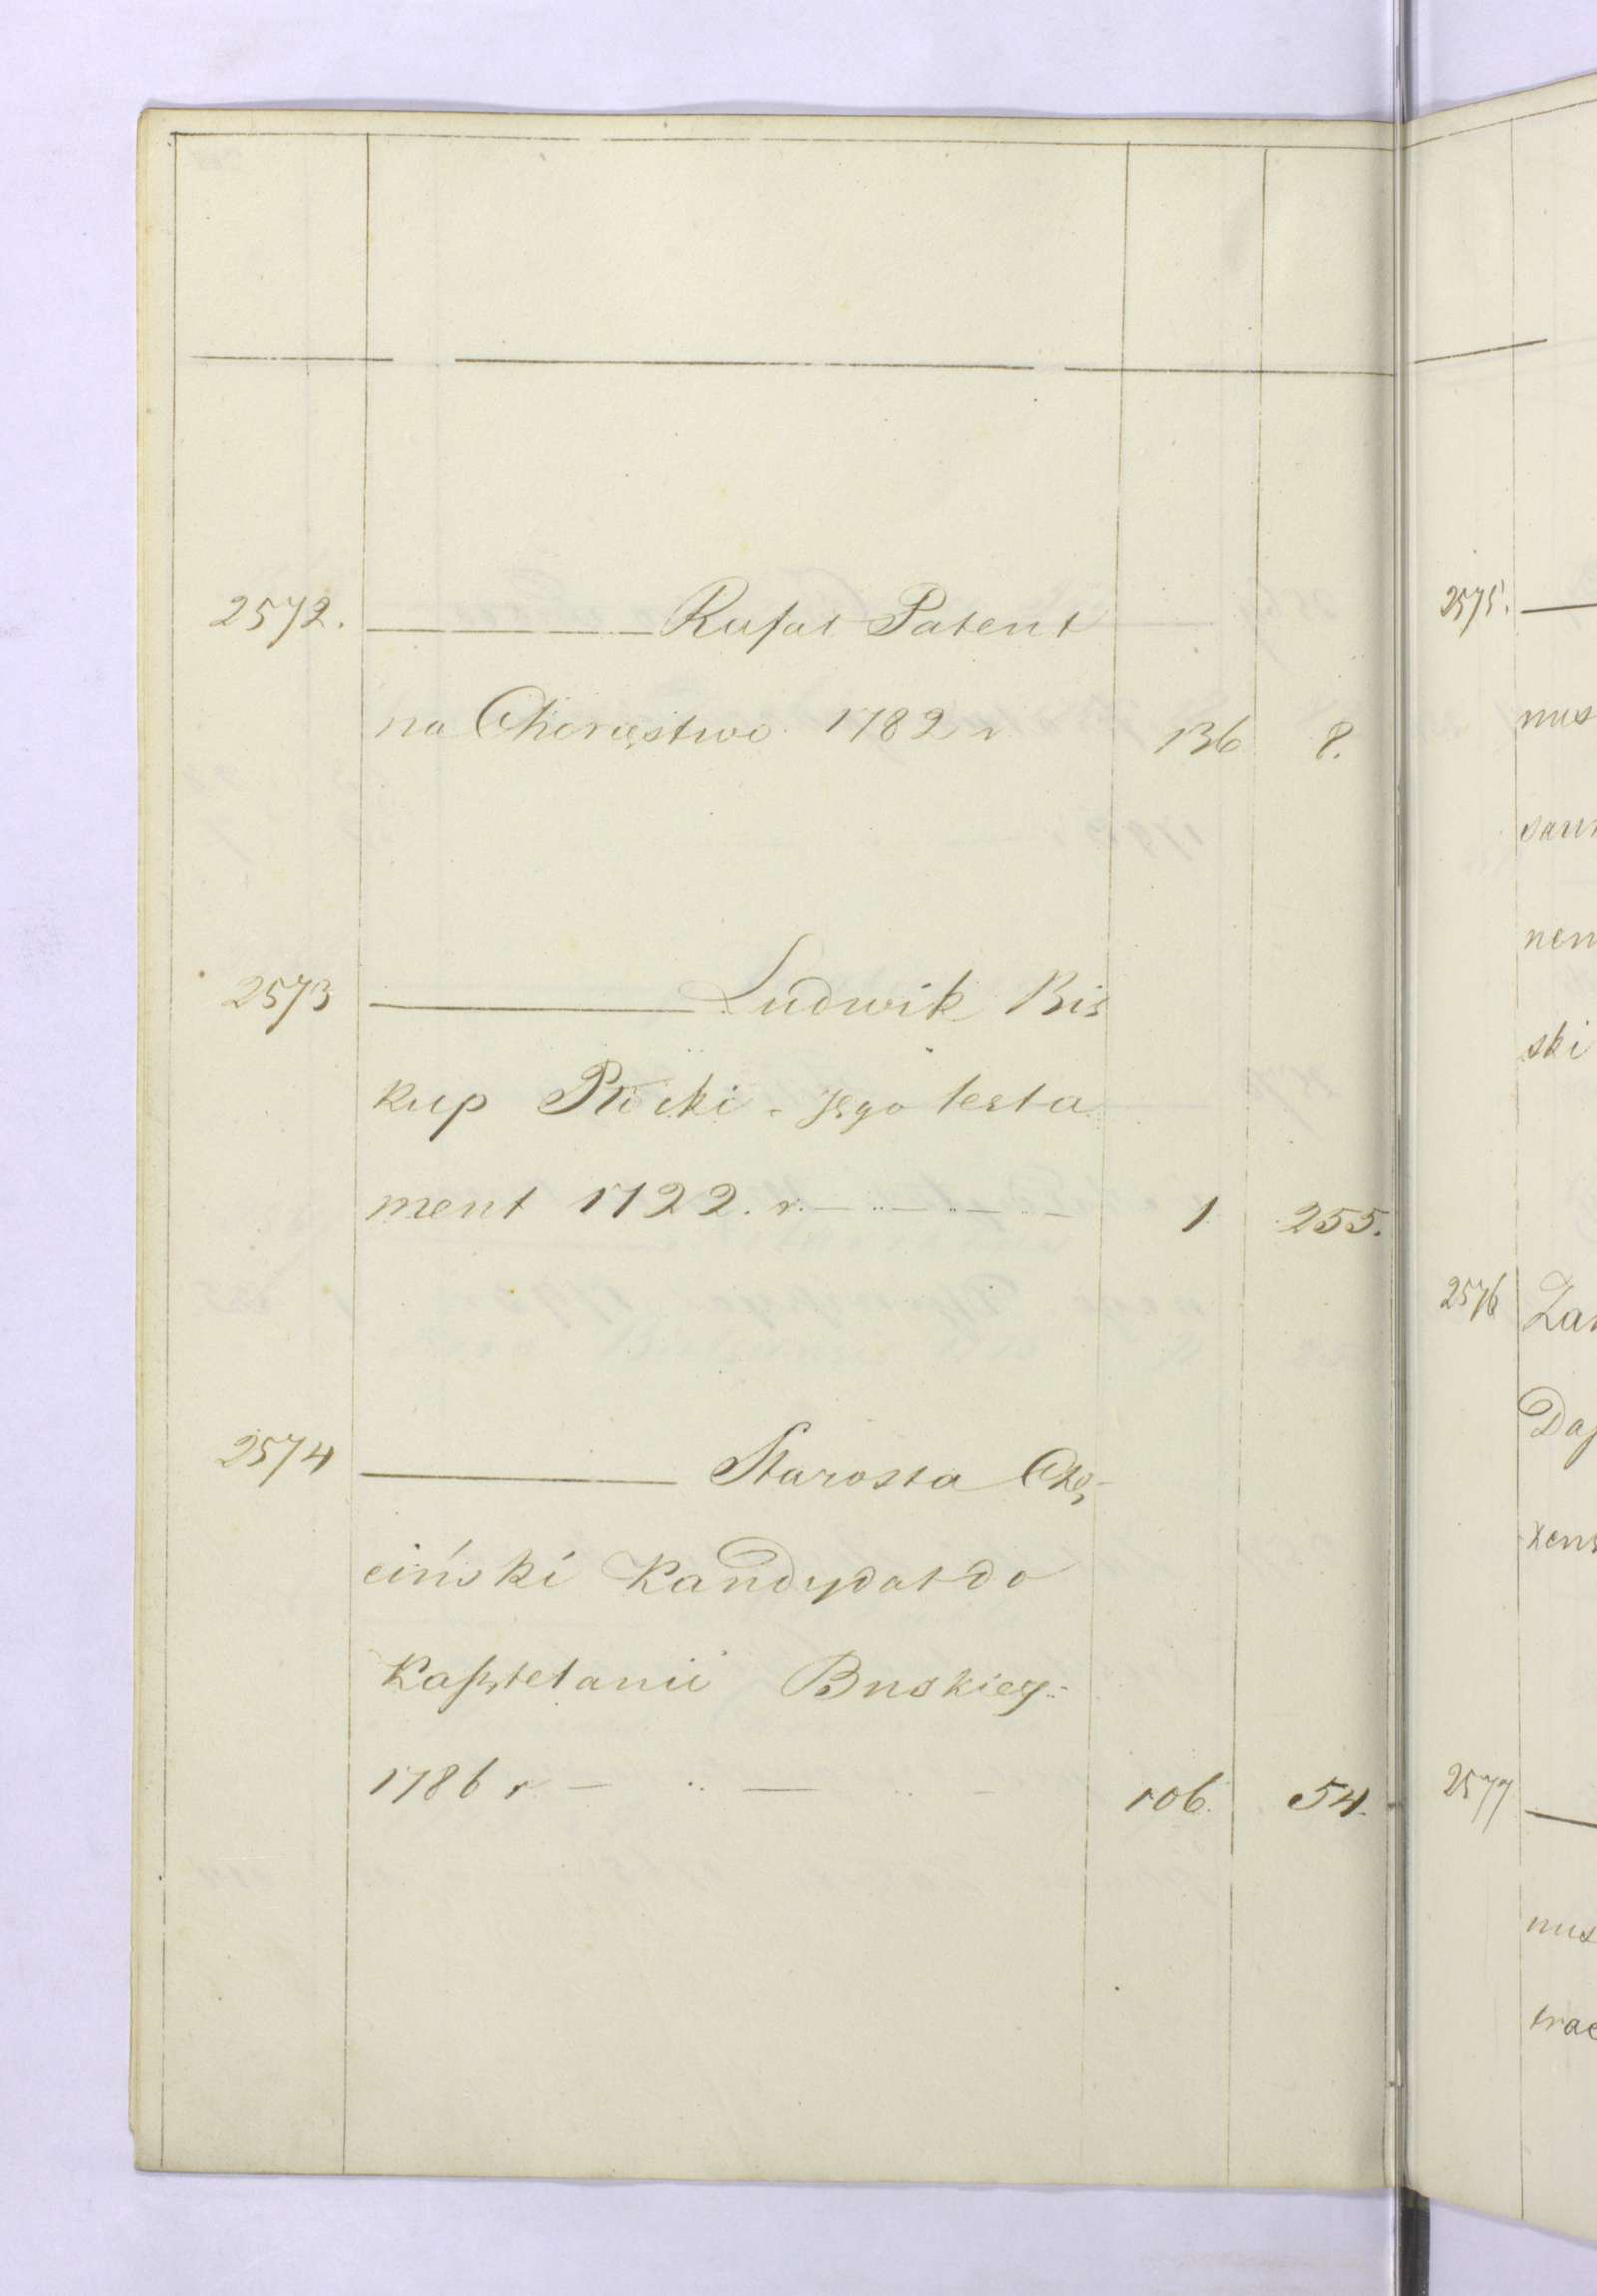 2572. ——— Rafał Patent
na Chorąstwo 1782 r 136 8.
2573 ——— Ludwik Bis
kup Płócki - jego testa
ment 1722. r. — .. — .. — .. — 1 255.
2574 ——— Starosta Chę-
ciński Kandydat do
Kasztelanii Buskiey
1786 r — .. — .. — 106. 54.
2575. —
nus
nen
ski
2576 Zar
2577 —
nus
trac